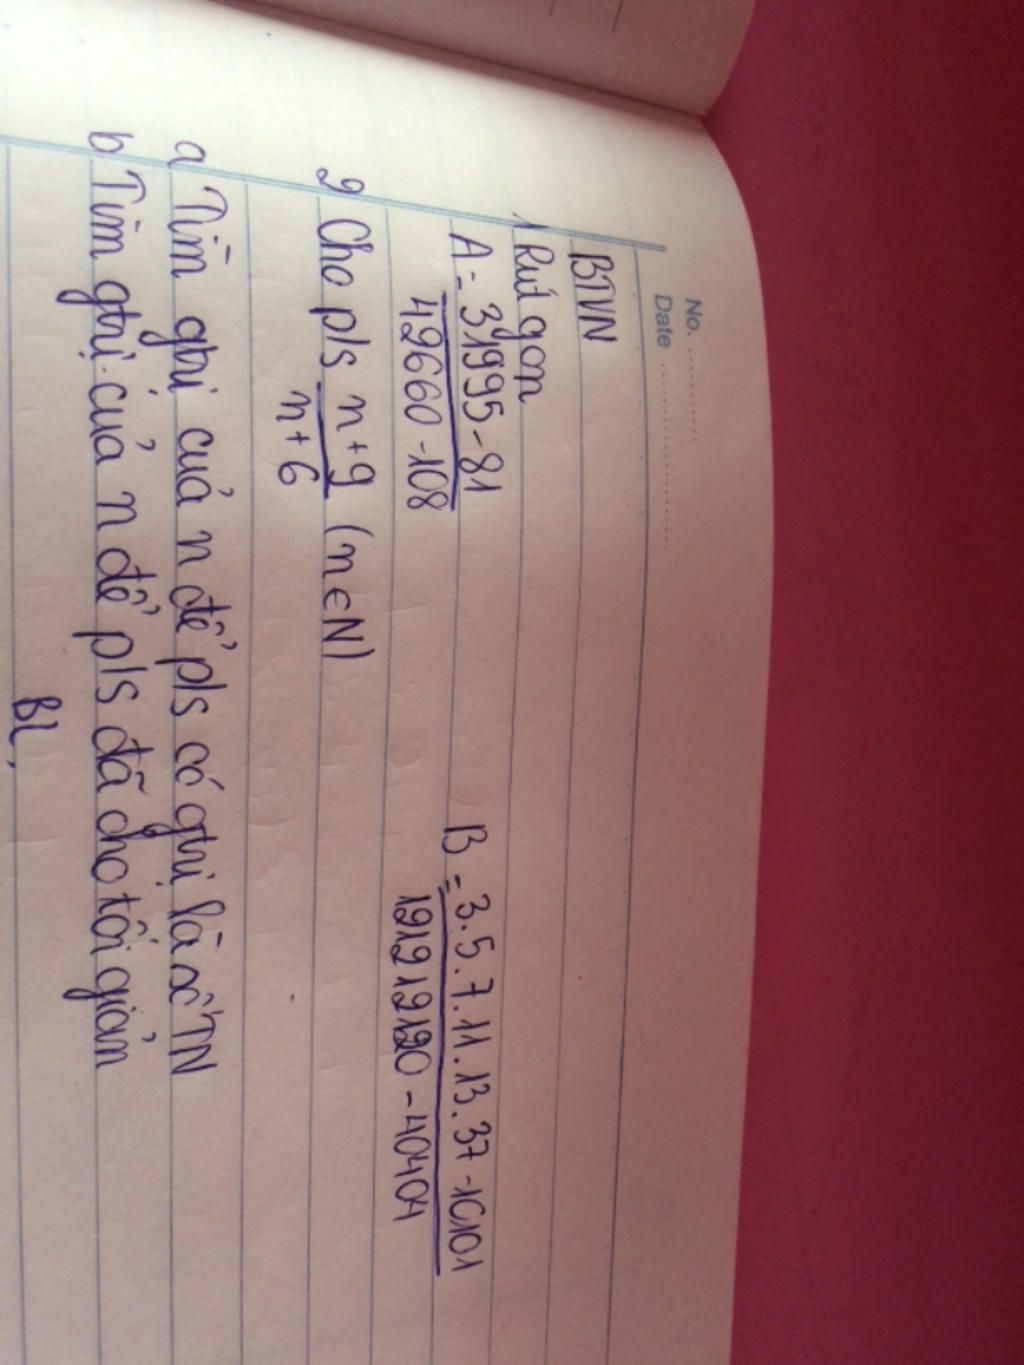 No. ............
Date ........................
BTVN
1 Rút gọn
A = 31995 - 81 B = 3.5.7.11.13.37 - 10101
42660 - 108 1212 12120 - 40404
2 Cho p/s n + 9 (n ∈ N)
n + 6
a Tìm gtrị của n để p/s có gtrị là số TN
b Tìm gtrị của n để p/s đã cho tối giản
BL,